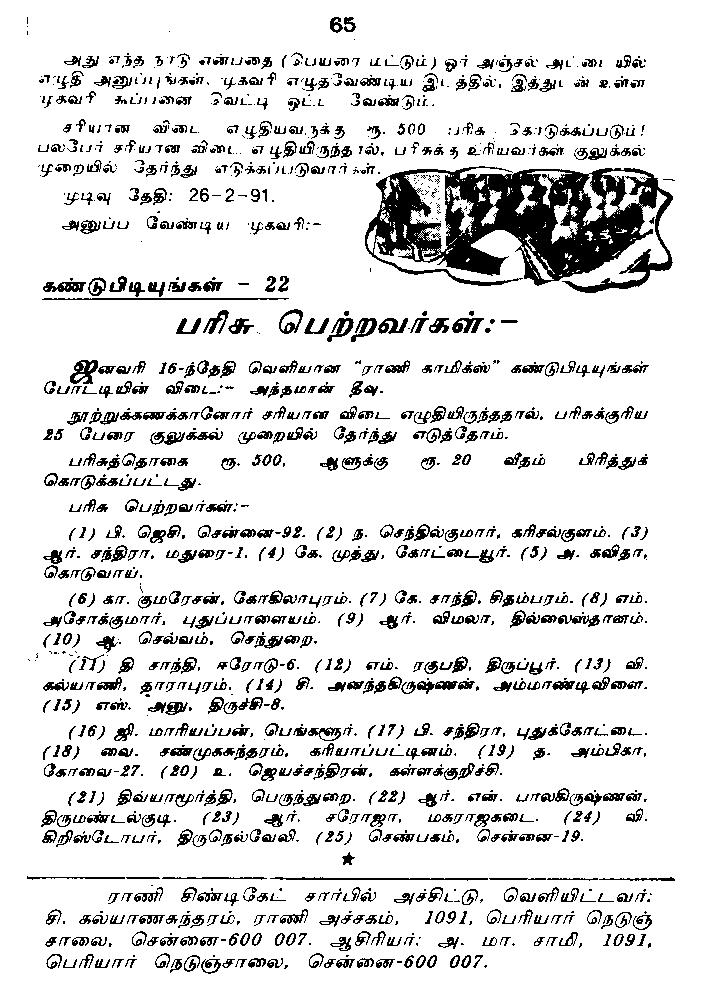 65
அது எந்த நாடு என்பதை (பெயரை மட்டும்) ஓர் அஞ்சல் அட்டையில்
எழுதி அனுப்புங்கள். முகவரி எழுதவேண்டிய இடத்தில், இத்துடன் உள்ள
முகவரி கூப்பனை வெட்டி ஒட்ட வேண்டும்.
சரியான விடை எழுதியவருக்கு ரூ. 500 பரிசு கொடுக்கப்படும்!
பலபேர் சரியான விடை எழுதியிருந்தால், பரிசுக்கு உரியவர்கள் குலுக்கல்
முறையில் தேர்ந்து எடுக்கப்படுவார்கள்.
முடிவு தேதி: 26-2-91.
அனுப்ப வேண்டிய முகவரி:-
கண்டுபிடியுங்கள் - 22
பரிசு பெற்றவர்கள்:-
ஜனவரி 16-ந்தேதி வெளியான "ராணி காமிக்ஸ்" கண்டுபிடியுங்கள்
போட்டியின் விடை:- அந்தமான் தீவு.
நூற்றுக்கணக்கானோர் சரியான விடை எழுதியிருந்ததால், பரிசுக்குரிய
25 பேரை குலுக்கல் முறையில் தேர்ந்து எடுத்தோம்.
பரிசுத்தொகை ரூ. 500, ஆளுக்கு ரூ. 20 வீதம் பிரித்துக்
கொடுக்கப்பட்டது.
பரிசு பெற்றவர்கள்:-
(1) பி. ஜெசி, சென்னை-92. (2) ந. செந்தில்குமார், கரிசல்குளம். (3)
ஆர். சந்திரா, மதுரை-1. (4) கே. முத்து, கோட்டையூர். (5) அ. கவிதா,
கொடுவாய்.
(6) கா. குமரேசன், கோகிலாபுரம். (7) கே. சாந்தி, சிதம்பரம். (8) எம்.
அசோக்குமார், புதுப்பாளையம். (9) ஆர். விமலா, தில்லைஸ்தானம்.
(10) ஆ. செல்வம், செந்துறை.
(11) தி சாந்தி, ஈரோடு-6. (12) எம். ரகுபதி, திருப்பூர். (13) வி.
கல்யாணி, தாராபுரம். (14) சி. அனந்தகிருஷ்ணன், அம்மாண்டிவிளை.
(15) எஸ். அனு, திருச்சி-8.
(16) ஜி. மாரியப்பன், பெங்களூர். (17) பி. சந்திரா, புதுக்கோட்டை.
(18) வை. சண்முகசுந்தரம், கரியாப்பட்டினம். (19) த. அம்பிகா,
கோவை-27. (20) உ. ஜெயச்சந்திரன், கள்ளக்குறிச்சி.
(21) திவ்யாமூர்த்தி, பெருந்துறை. (22) ஆர். என். பாலகிருஷ்ணன்,
திருமண்டல்குடி. (23) ஆர். சரோஜா, மகராஜகடை. (24) வி.
கிறிஸ்டோபர், திருநெல்வேலி. (25) செண்பகம், சென்னை-19.
ராணி சிண்டிகேட் சார்பில் அச்சிட்டு, வெளியிட்டவர்:
சி. கல்யாணசுந்தரம், ராணி அச்சகம், 1091, பெரியார் நெடுஞ்
சாலை, சென்னை-600 007. ஆசிரியர்: அ. மா. சாமி, 1091,
பெரியார் நெடுஞ்சாலை, சென்னை-600 007.